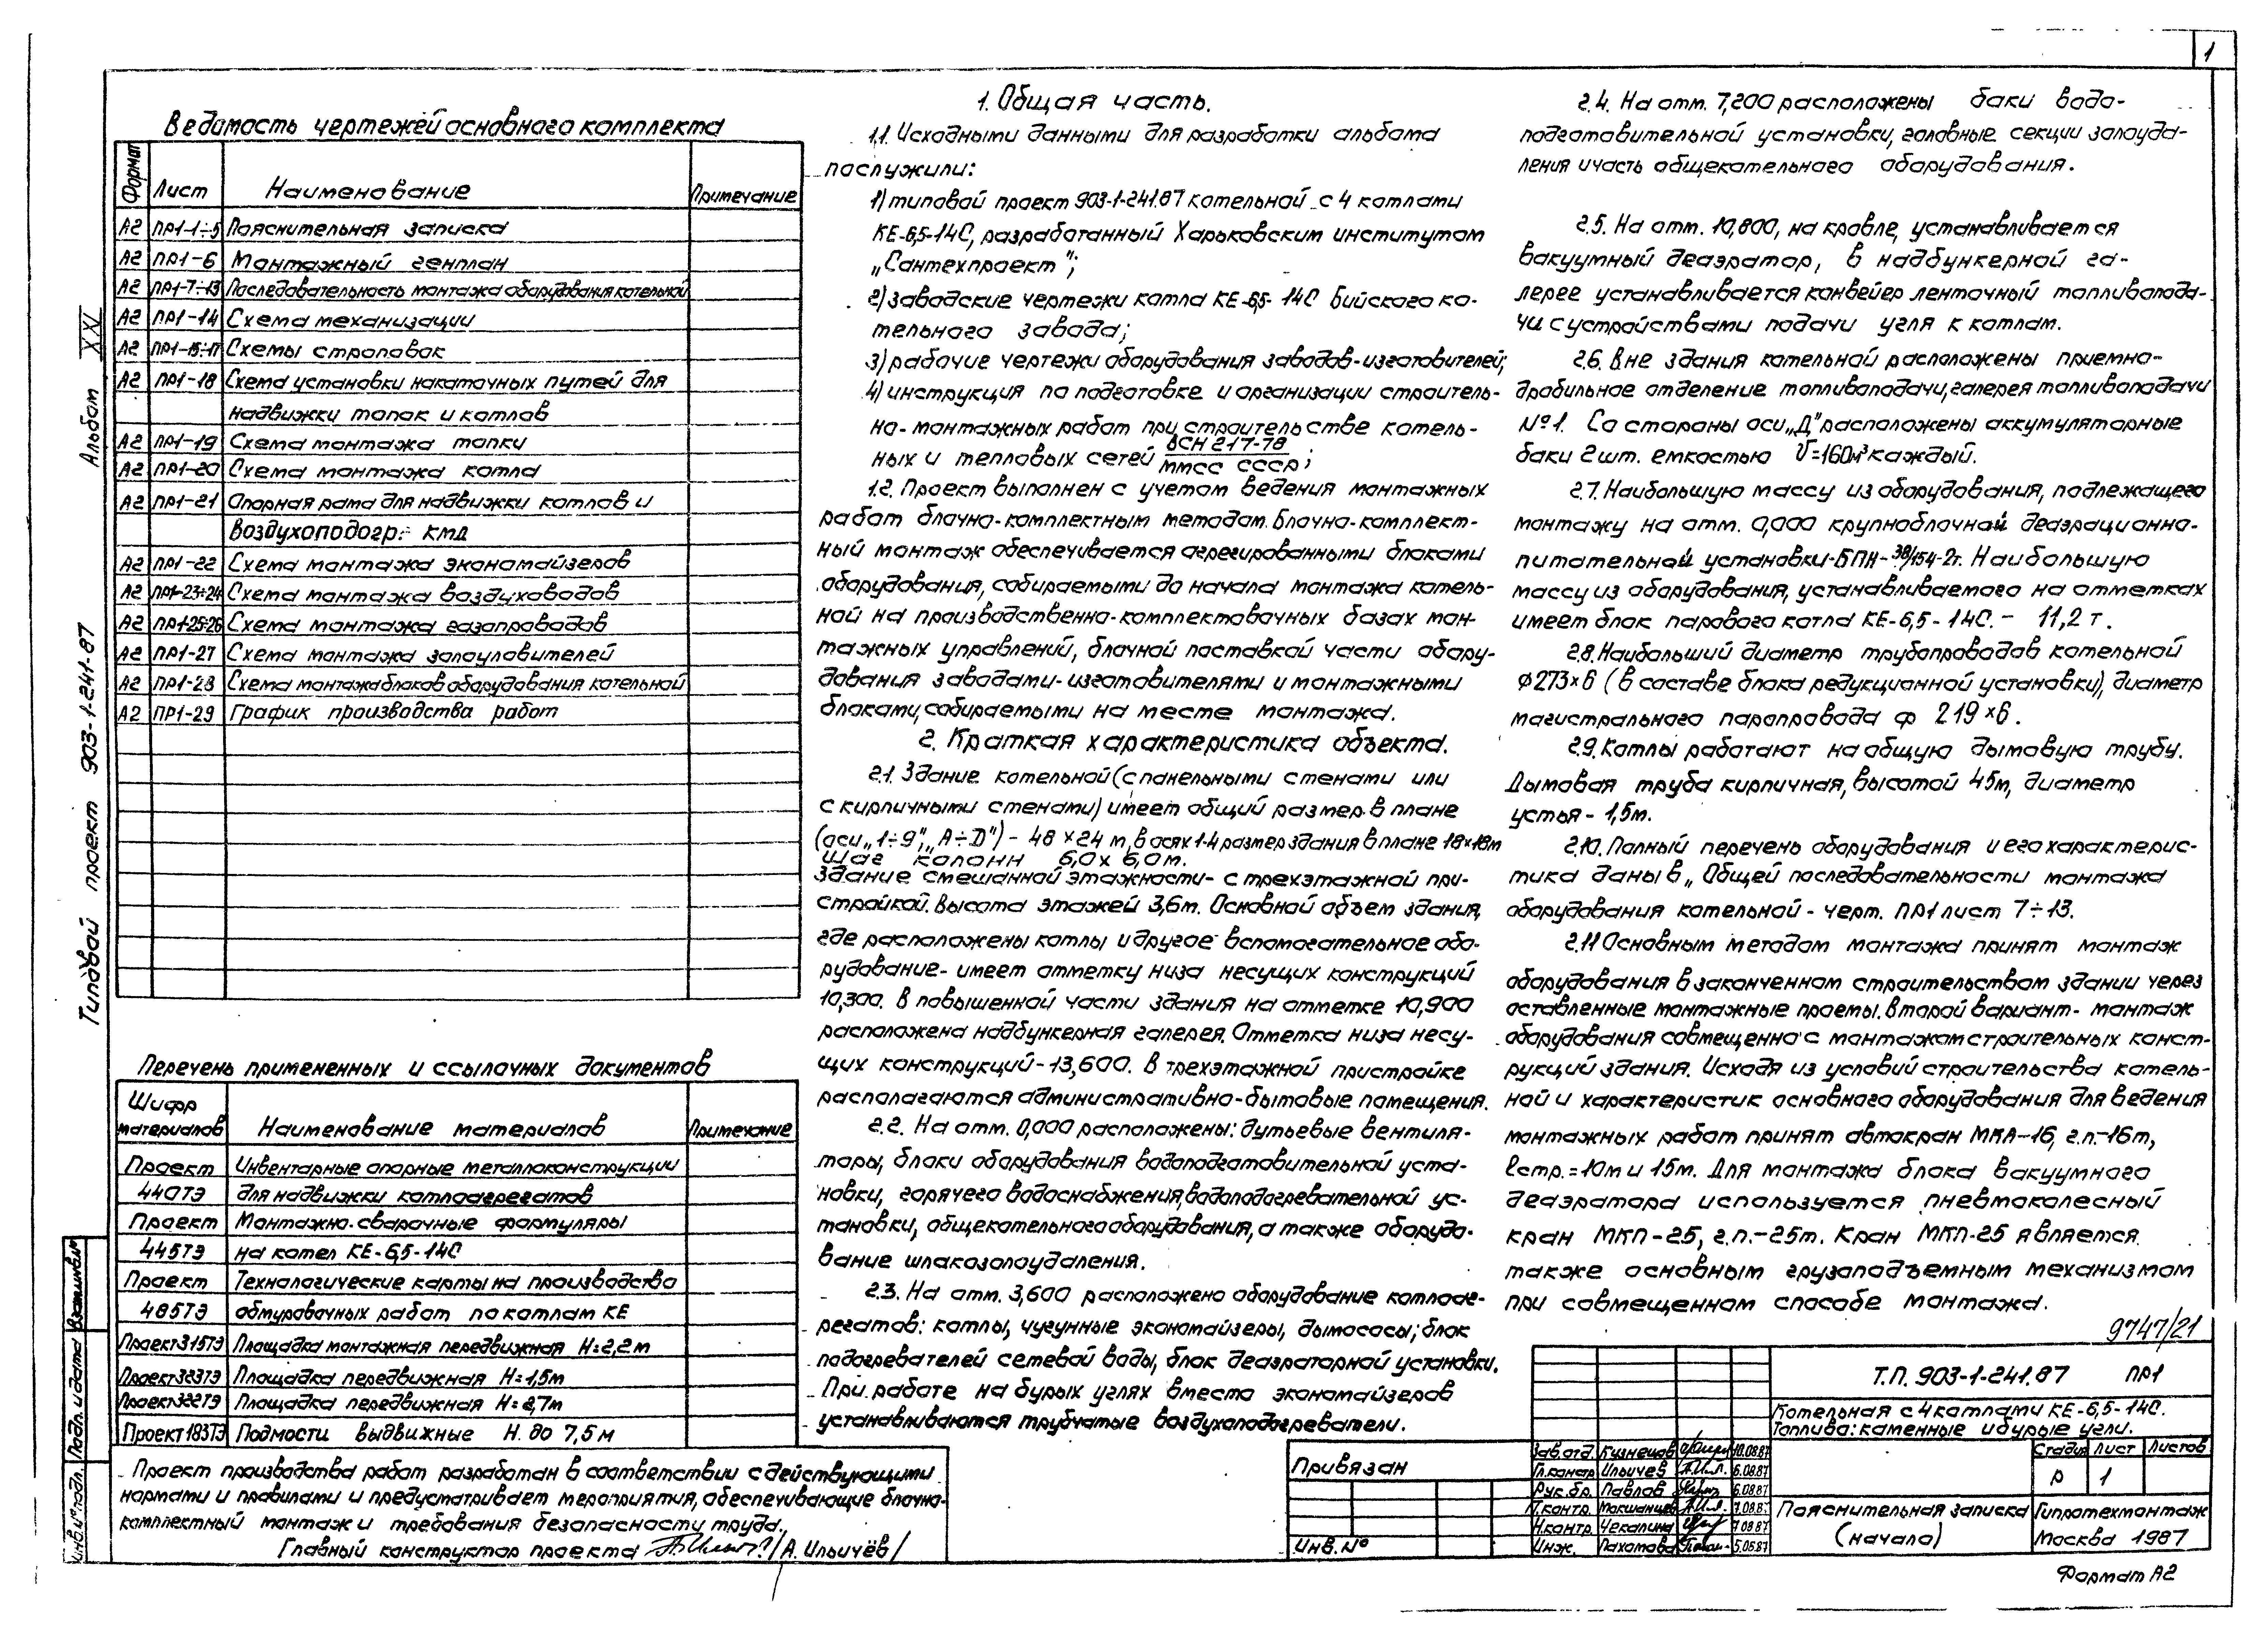 1
Ведомость чертежей основного комплекта
Формат Лист Наименование Примечание
А2 ПР1-1÷5 Пояснительная записка
А2 ПР1-6 Монтажный генплан
А2 ПР1-7÷13 Последовательность монтажа оборудования котельной
А2 ПР1-14 Схема механизации
А2 ПР1-15÷17 Схемы строповок
А2 ПР1-18 Схема установки накаточных путей для
надвижки топок и котлов
А2 ПР1-19 Схема монтажа топки
А2 ПР1-20 Схема монтажа котла
А2 ПР1-21 Опорная рама для надвижки котлов и
воздухоподогр. КМД
А2 ПР1-22 Схема монтажа экономайзеров
А2 ПР1-23÷24 Схема монтажа воздуховодов
А2 ПР1-25÷26 Схема монтажа газопроводов
А2 ПР1-27 Схема монтажа золоуловителей
А2 ПР1-28 Схема монтажа блоков оборудования котельной
А2 ПР1-29 График производства работ
Перечень примененных и ссылочных документов
Шифр материалов Наименование материалов Примечание
Проект Инвентарные опорные металлоконструкции
440ТЭ для надвижки котлоагрегатов
Проект Монтажно-сварочные формуляры
445ТЭ на котел КЕ-6,5-14С
Проект Технологические карты на производство
485ТЭ обмуровочных работ по котлам КЕ
Проект315ТЭ Площадка монтажная передвижная Н=2,2м
Проект323ТЭ Площадка передвижная Н=1,5м
Проект322ТЭ Площадка передвижная Н=2,7м
Проект183ТЭ Подмости выдвижные Н. до 7,5м
Проект производства работ разработан в соответствии с действующими
нормами и правилами и предусматривает мероприятия, обеспечивающие блочно-
комплектный монтаж и требования безопасности труда.
Главный конструктор проекта /А. Ильичёв/
Типовой проект 903-1-241-87 Альбом XXI
Инв.№подл. Подп. и дата Взам.инв.№
1. Общая часть.
1.1. Исходными данными для разработки альбома
послужили:
1) типовой проект 903-1-241.87 котельной с 4 котлами
КЕ-6,5-14С, разработанный Харьковским институтом
„Сантехпроект";
2) заводские чертежи котла КЕ-6,5-14С Бийского ко-
тельного завода;
3) рабочие чертежи оборудования заводов-изготовителей;
4) инструкция по подготовке и организации строитель-
но-монтажных работ при строительстве котель-
ных и тепловых сетей ВСН 217-78
ММСС СССР;
1.2. Проект выполнен с учетом ведения монтажных
работ блочно-комплектным методом. Блочно-комплект-
ный монтаж обеспечивается агрегированными блоками
оборудования, собираемыми до начала монтажа котель-
ной на производственно-комплектовочных базах мон-
тажных управлений, блочной поставкой части обору-
дования заводами-изготовителями и монтажными
блоками, собираемыми на месте монтажа.
2. Краткая характеристика объекта.
2.1. Здание котельной (с панельными стенами или
с кирпичными стенами) имеет общий размер в плане
(оси „1÷9", „А÷D") - 48×24 м, в осях 1-4 размер здания в плане 18×18м
Шаг колонн 6,0 х 6,0м.
Здание смешанной этажности - с трехэтажной при-
стройкой. Высота этажей 3,6м. Основной объем здания,
где расположены котлы и другое вспомогательное обо-
рудование - имеет отметку низа несущих конструкций
10,300. В повышенной части здания на отметке 10,900
расположена надбункерная галерея. Отметка низа несу-
щих конструкций - 13,600. В трехэтажной пристройке
располагаются административно-бытовые помещения.
2.2. На отм. 0,000 расположены: дутьевые вентиля-
торы, блоки оборудования водоподготовительной уста-
новки, горячего водоснабжения, водоподогревательной ус-
тановки, общекотельного оборудования, а также оборудо-
вание шлакозолоудаления.
2.3. На отм. 3,600 расположено оборудование котлоаг-
регатов: котлы, чугунные экономайзеры, дымососы; блок
подогревателей сетевой воды, блок деаэраторной установки.
При работе на бурых углях вместо экономайзеров
устанавливаются трубчатые воздухоподогреватели.
2.4. На отм. 7,200 расположены баки водо-
подготовительной установки, головные секции золоуда-
ления и часть общекотельного оборудования.
2.5. На отм. 10,800, на кровле, устанавливается
вакуумный деаэратор, в надбункерной га-
лерее устанавливается конвейер ленточный топливопода-
чи с устройствами подачи угля к котлам.
2.6. Вне здания котельной расположены приемно-
дробильное отделение топливоподачи, галерея топливоподачи
№1. Со стороны оси „Д" расположены аккумуляторные
баки 2шт. емкостью V=160м³ каждый.
2.7. Наибольшую массу из оборудования, подлежащего
монтажу на отм. 0,000 крупноблочной деаэрационно-
питательной установки-БПН-38/154-2т. Наибольшую
массу из оборудования, устанавливаемого на отметках
имеет блок парового котла КЕ-6,5-14С. - 11,2 т.
2.8. Наибольший диаметр трубопроводов котельной
ф273×6 (в составе блока редукционной установки), диаметр
магистрального паропровода ф 219×6.
2.9. Котлы работают на общую дымовую трубу.
Дымовая труба кирпичная, высотой 45м, диаметр
устья - 1,5м.
2.10. Полный перечень оборудования и его характерис-
тика даны в „ Общей последовательности монтажа
оборудования котельной - черт. ПР1 лист 7÷13.
2.11 Основным методом монтажа принят монтаж
оборудования в законченном строительством здании через
оставленные монтажные проемы. Второй вариант - монтаж
оборудования совмещенно с монтажом строительных конст-
рукций здания. Исходя из условий строительства котель-
ной и характеристик основного оборудования для ведения
монтажных работ принят автокран МКА-16, г.п.-16т,
ℓстр.=10м и 15м. Для монтажа блока вакуумного
деаэратора используется пневмоколесный
кран МКП-25, г.п.-25т. Кран МКП-25 является
также основным грузоподъемным механизмом
при совмещенном способе монтажа.
9747/21
Привязан
Инв.№
Т.П. 903-1-241.87 ПР1
Котельная с 4 котлами КЕ-6,5-14С.
Топливо: каменные и бурые угли.
Зав.отд. Кузнецов 10.08.87
Гл.констр. Ильичев 6.08.87
Рук.бр. Павлов 6.08.87
Т.контр. Мокшанцев 7.08.87
Н.контр. Чекалина 7.08.87
Инж. Пахомова 5.05.87
Стадия Лист Листов
Р 1
Пояснительная записка
(начало)
Гипротехмонтаж
Москва 1987
Формат А2